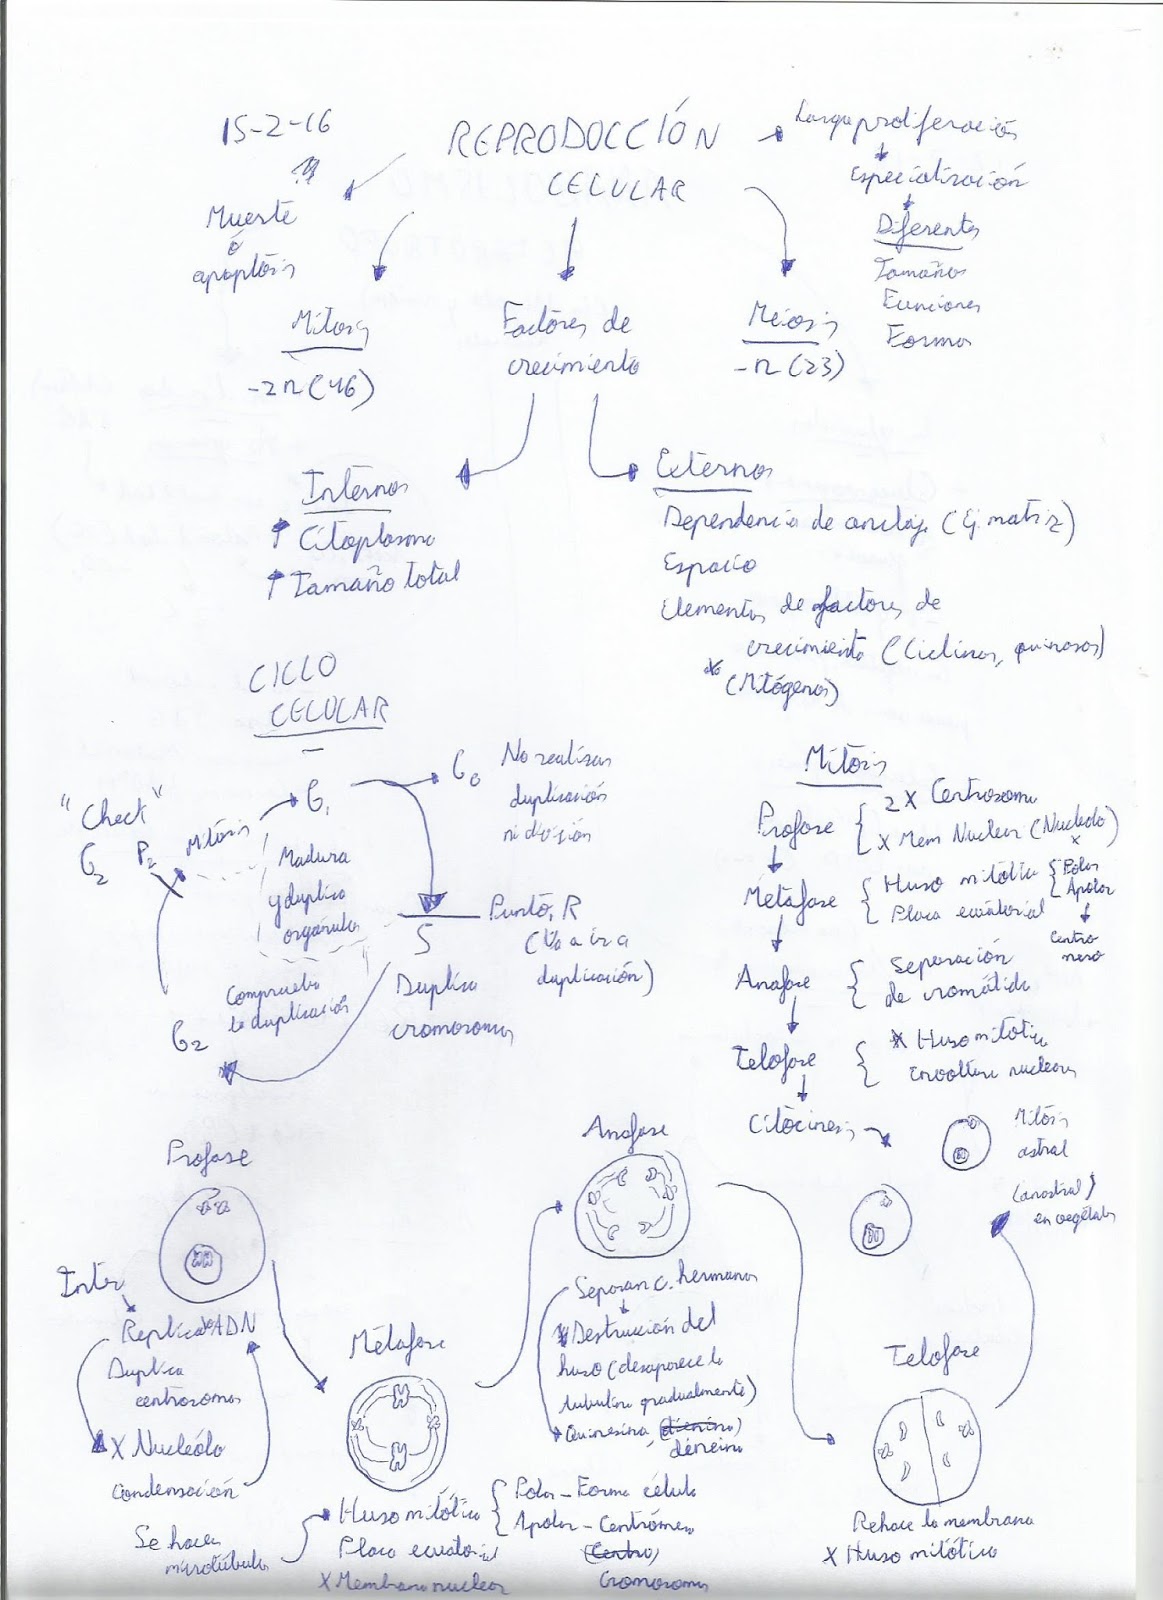 15-2-16
REPRODUCCIÓN
CELULAR
Larga proliferación
Especialización
Diferentes
Tamaños
Funciones
Forma
Muerte
ó
apoptosis
Mitosis
-2n (46)
Factores de
crecimiento
Meiosis
-n (23)
Internos
Citoplasma
Tamaño total
Externos
Dependencia de anclaje (Ej. matriz)
Espacio
Elementos de factores de
crecimiento (Ciclinas, quinasas)
(Mitógenos)
CICLO
CELULAR
"Check"
G2
P2
Mitosis
G1
G0
No realizan
duplicación
ni división
Madura
y duplica
orgánulos
Punto R
(Va a ir a
duplicación)
S
Duplica
cromosomas
Comprueba
la duplicación
G2
Mitosis
Profase
2 X Centrosoma
X Mem Nuclear (Nucleolo)
x
Metafase
Huso mitótico
Placa ecuatorial
Polar
Apolar
Centro
mero
Anafase
Separación
de cromátida
Telofase
X Huso mitótico
Envoltura nuclear
Citocinesis
Mitosis
astral
(anastral)
en vegetales
Profase
Inter
Replica ADN
Duplica
centrosomas
X Nucleólo
Condensación
Se hacen
microtúbulos
Metafase
Huso mitótico
Placa ecuatorial
X Membrana nuclear
Polar - Forma célula
Apolar - Centrómero
(Centro)
Cromosomas
Anafase
Separan c. hermanas
Destrucción del
huso (desaparece la
tubulina gradualmente)
Quinesina, (dienina)
dineina
Telofase
Rehace la membrana
X Huso mitótico